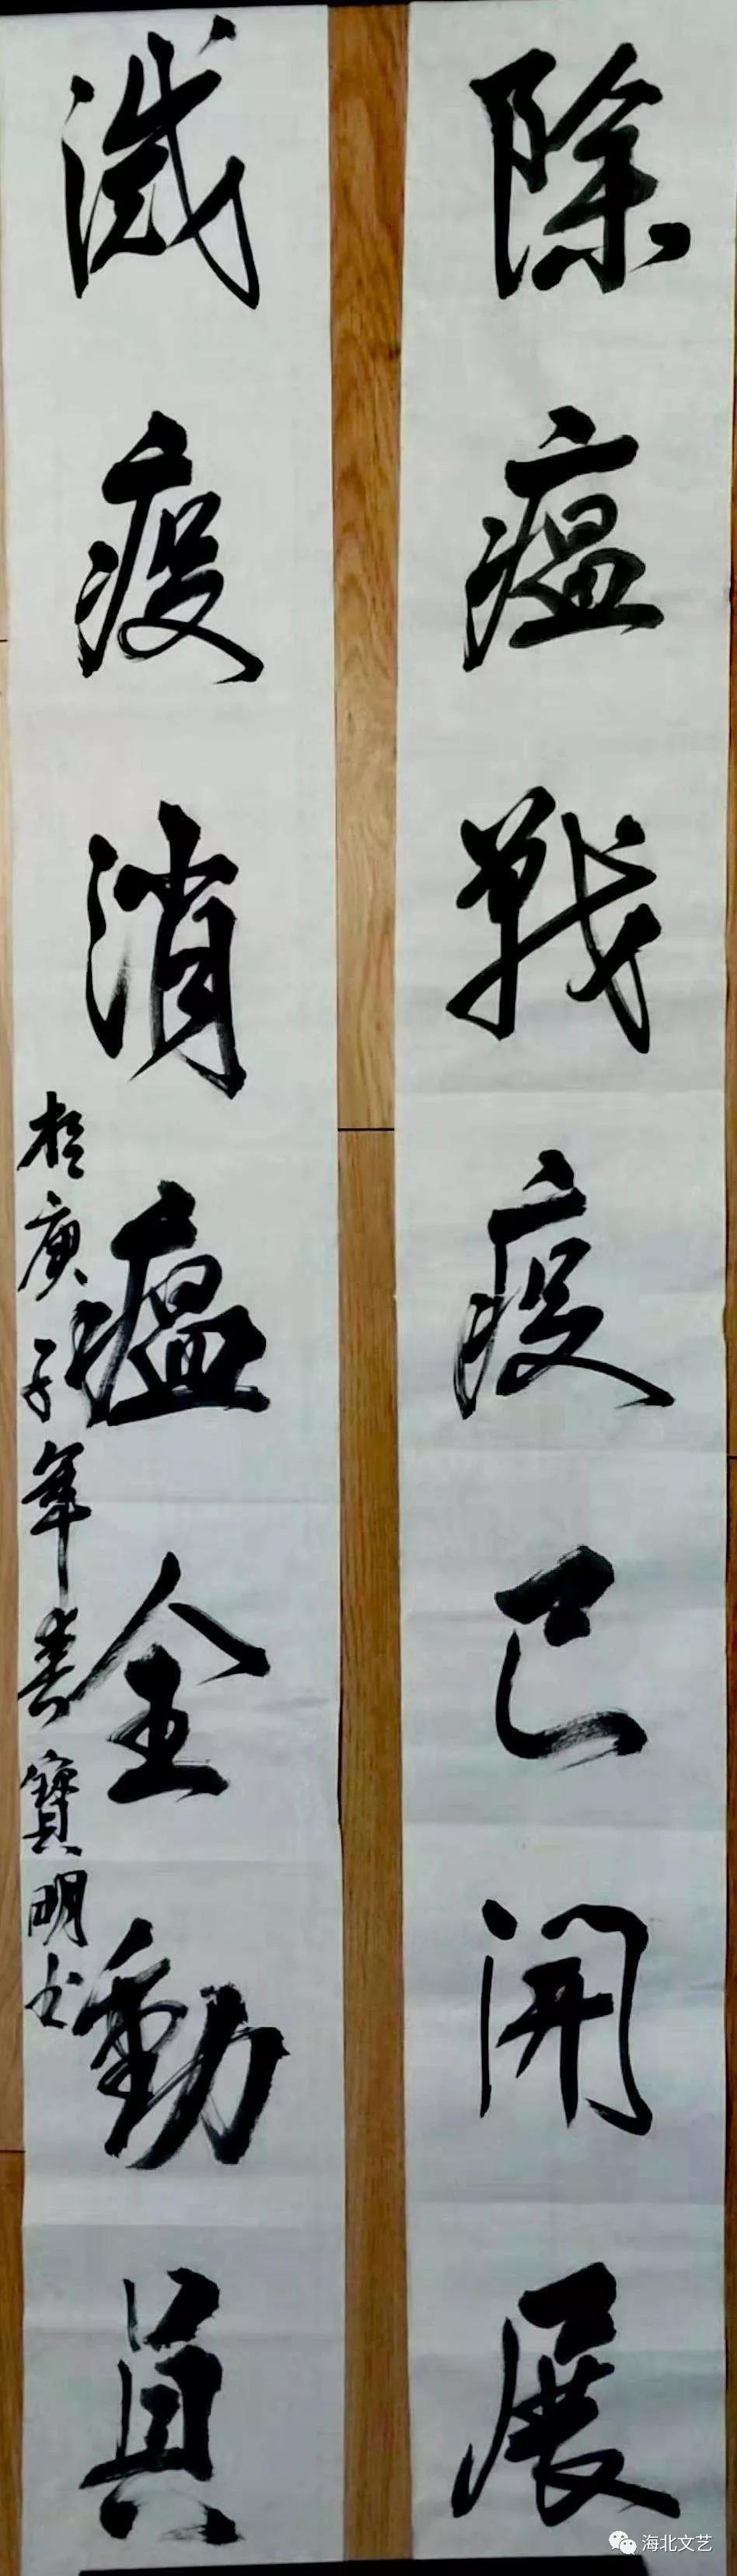 除瘟戰疫已開展
滅疫消瘟全動員
於庚子年春寶明书
海北文艺